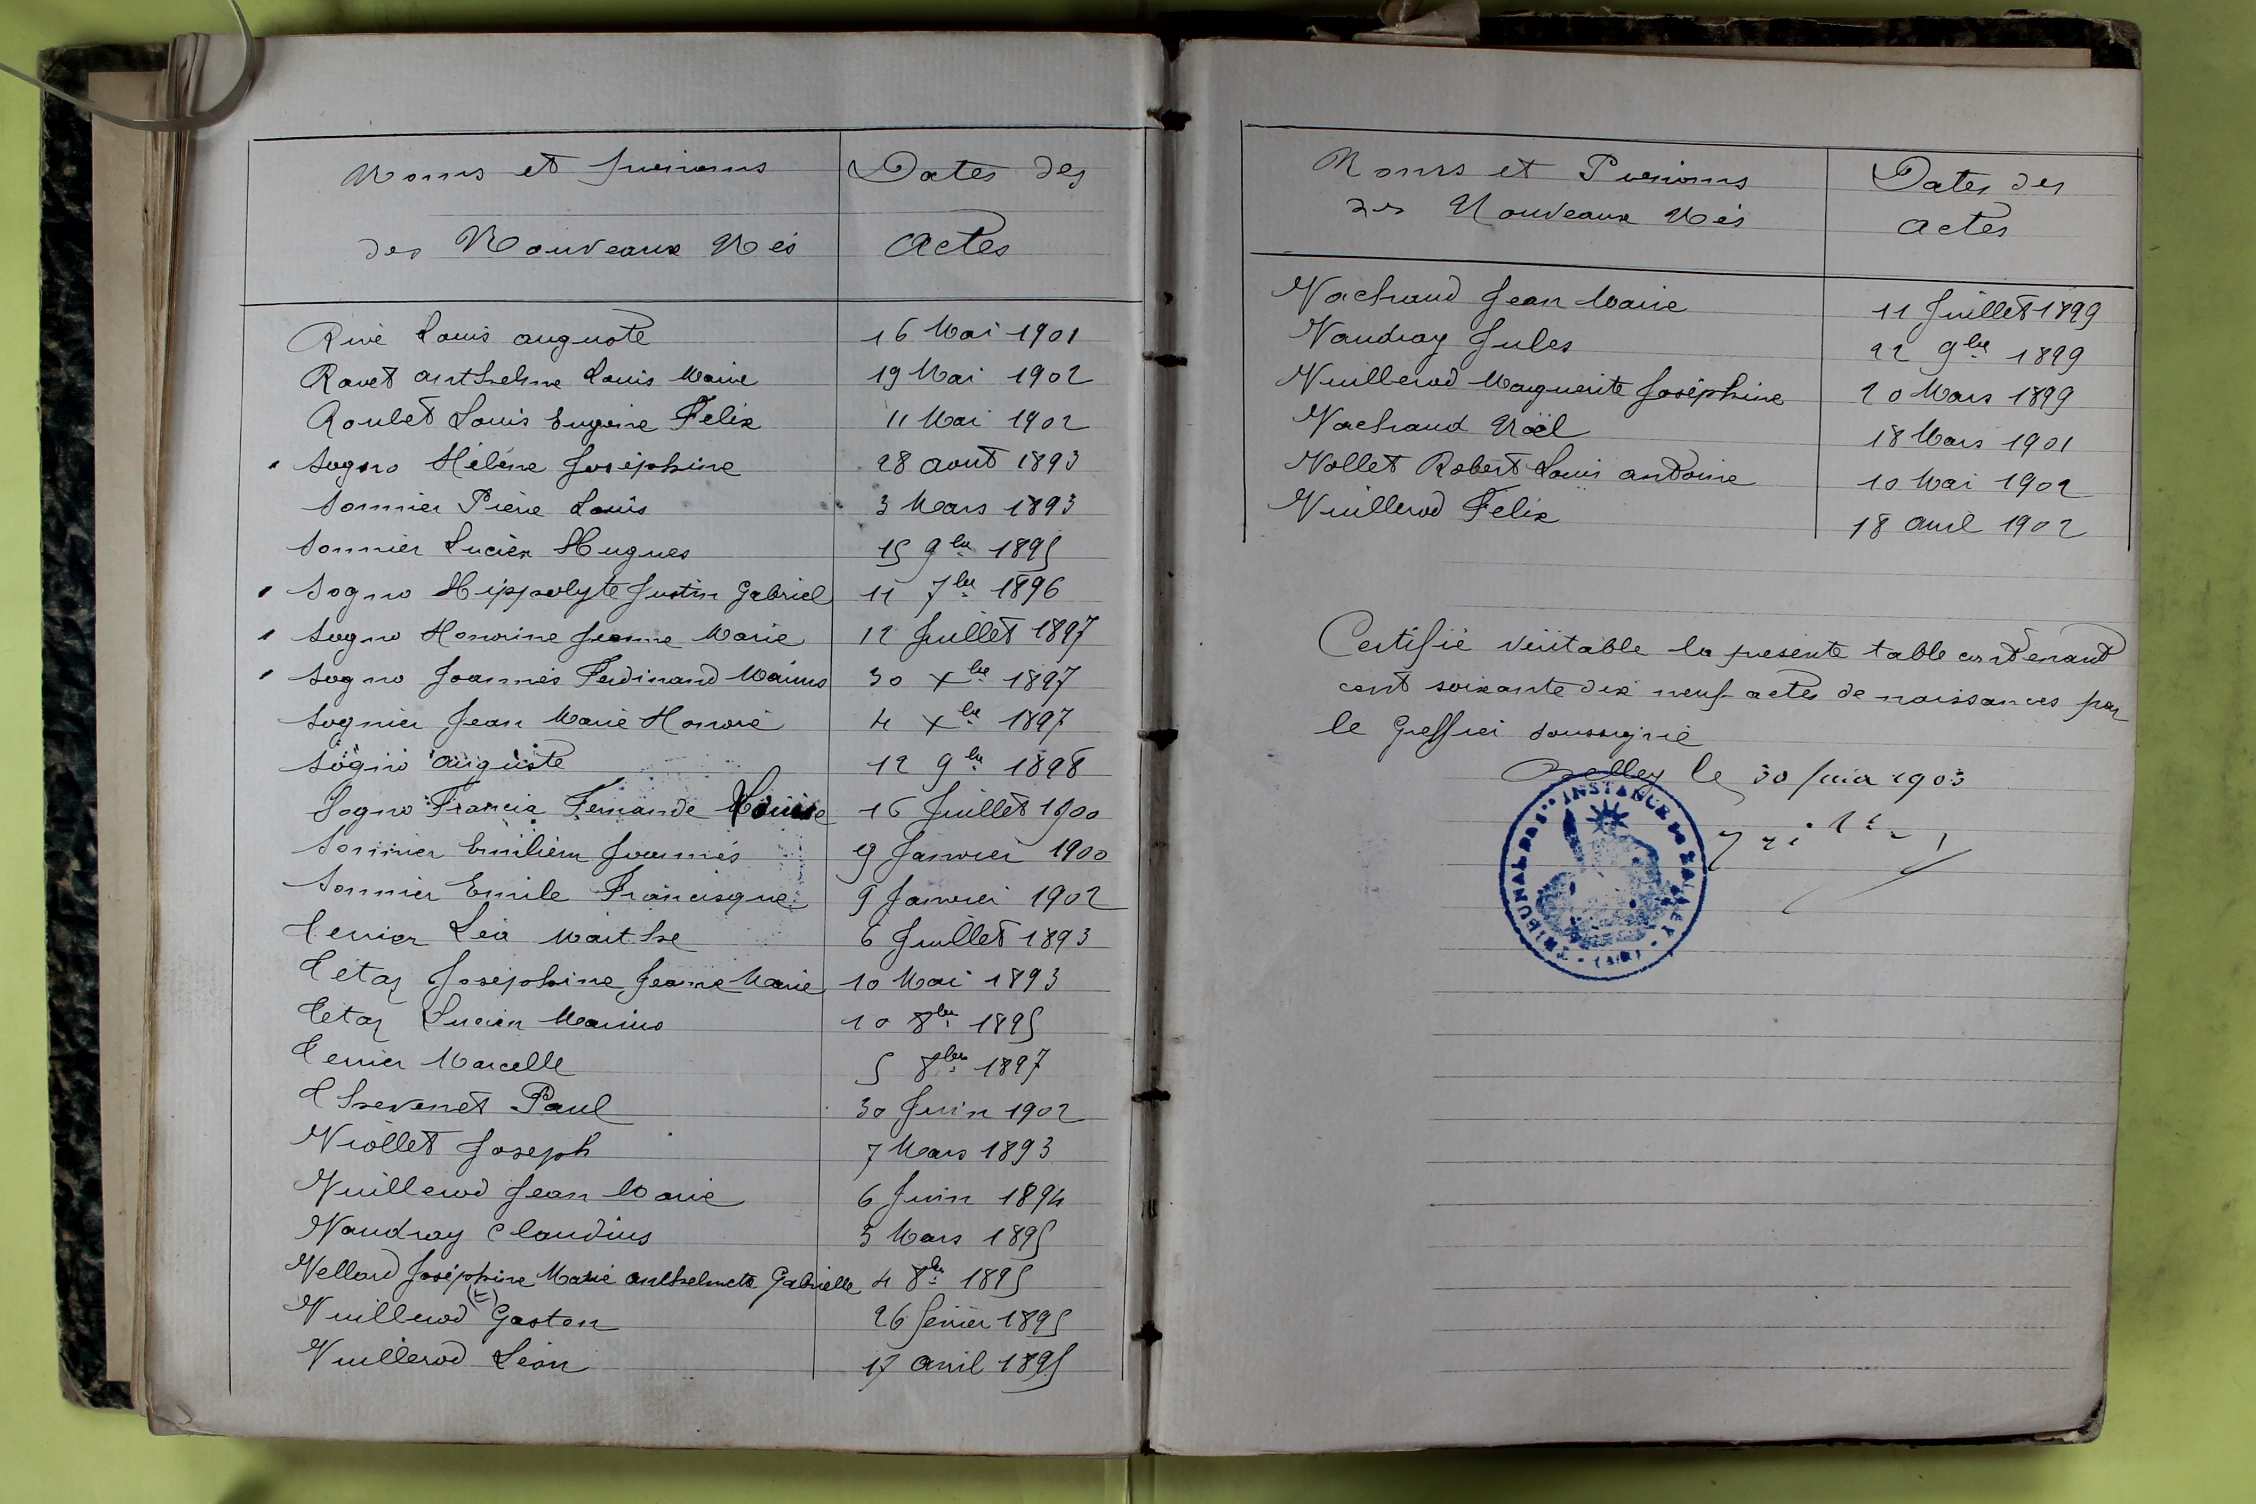 Noms et prénoms
des Nouveaux Nés
Dates des
Actes
Rive Louis auguste 16 Mai 1901
Ravet anthelme Louis Marie 19 Mai 1902
Roulet Louis Eugène Félix 11 Mai 1902
Sogno Hélène Joséphine 28 aout 1893
Sonnier Pierre Louis 3 Mars 1893
Sonnier Lucien Hugues 15 9bre 1895
Sogno Hippolyte Justin Gabriel 11 7bre 1896
Sogno Honorine Jeanne Marie 12 Juillet 1897
Sogno Joannès Ferdinand Marius 30 Xbre 1897
Sognier Jean Marie Honoré 4 Xbre 1897
Sogno auguste 12 9bre 1898
Sogno Francia Fernande Louise 16 Juillet 1900
Sonnier Emilien Joannès 9 Janvier 1900
Sonnier Emile Francisque 9 Janvier 1902
Terrier Léa Marthe 6 Juillet 1893
Tétaz Joséphine Jeanne Marie 10 Mai 1893
Tétaz Lucien Marius 10 8bre 1895
Terrier Marcelle 5 8bre 1897
Thevenet Paul 30 Juin 1902
Viollet Joseph 7 Mars 1893
Vuillerod Jean Marie 6 Juin 1894
Vaudray Claudius 3 Mars 1895
Vellard Joséphine Marie anthelmette Gabrielle 4 8bre 1895
Vuillerod (H) Gaston 26 février 1895
Vuillerod Léon 17 avril 1895
Noms et Prénoms
des Nouveaux Nés
Dates des
actes
Vachaud Jean Marie 11 Juillet 1899
Vaudray Jules 22 9bre 1899
Vuillerod Marguerite Joséphine 20 Mars 1899
Vachaud Noël 18 Mars 1901
Vollet Robert Louis antoine 10 Mai 1902
Vuillerod Félix 18 avril 1902
Certifié véritable la présente table contenant
cent soixante dix neuf actes de naissances par
le Greffier soussigné
Belley le 30 Juin 1903
TRIBUNAL DE 1re INSTANCE DE BELLEY (AIN)